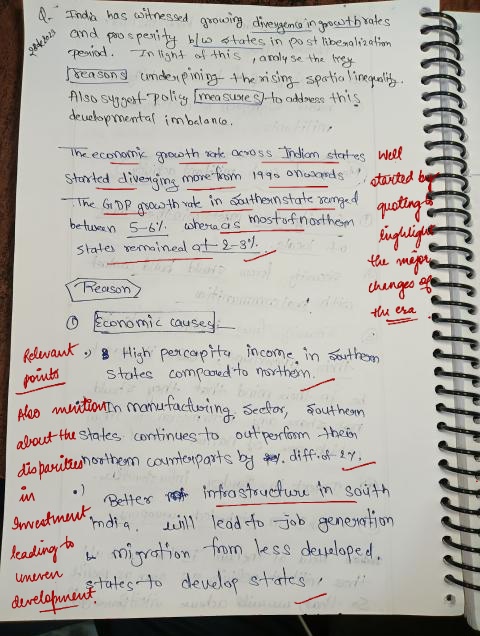 Q- India has witnessed growing divergence in growth rates
and prosperity b/w states in post liberalization
period. In light of this, analyse the key
reasons underpining the rising spatial inequality.
Also suggest policy measures to address this
developmental imbalance.
The economic growth rate across Indian states
started diverging more from 1990 onwards
The GDP growth rate in Southern state ranged
between 5-6% whereas most of northern
states remained at 2-3%.
Well
started by
quoting &
highlight
the major
changes of
the era
Reason
① Economic causes:-
•) High percapita income in Southern
States compared to northern.
In manufacturing Sector, Southern
states continues to outperform their
northern counterparts by diff. of 2%
•) Better infrastructure in south
india. will lead to job generation
& migration from less developed.
states to develop states
Relevant
points
Also mention
about the
disparities
in
Investment
leading to
uneven
development.